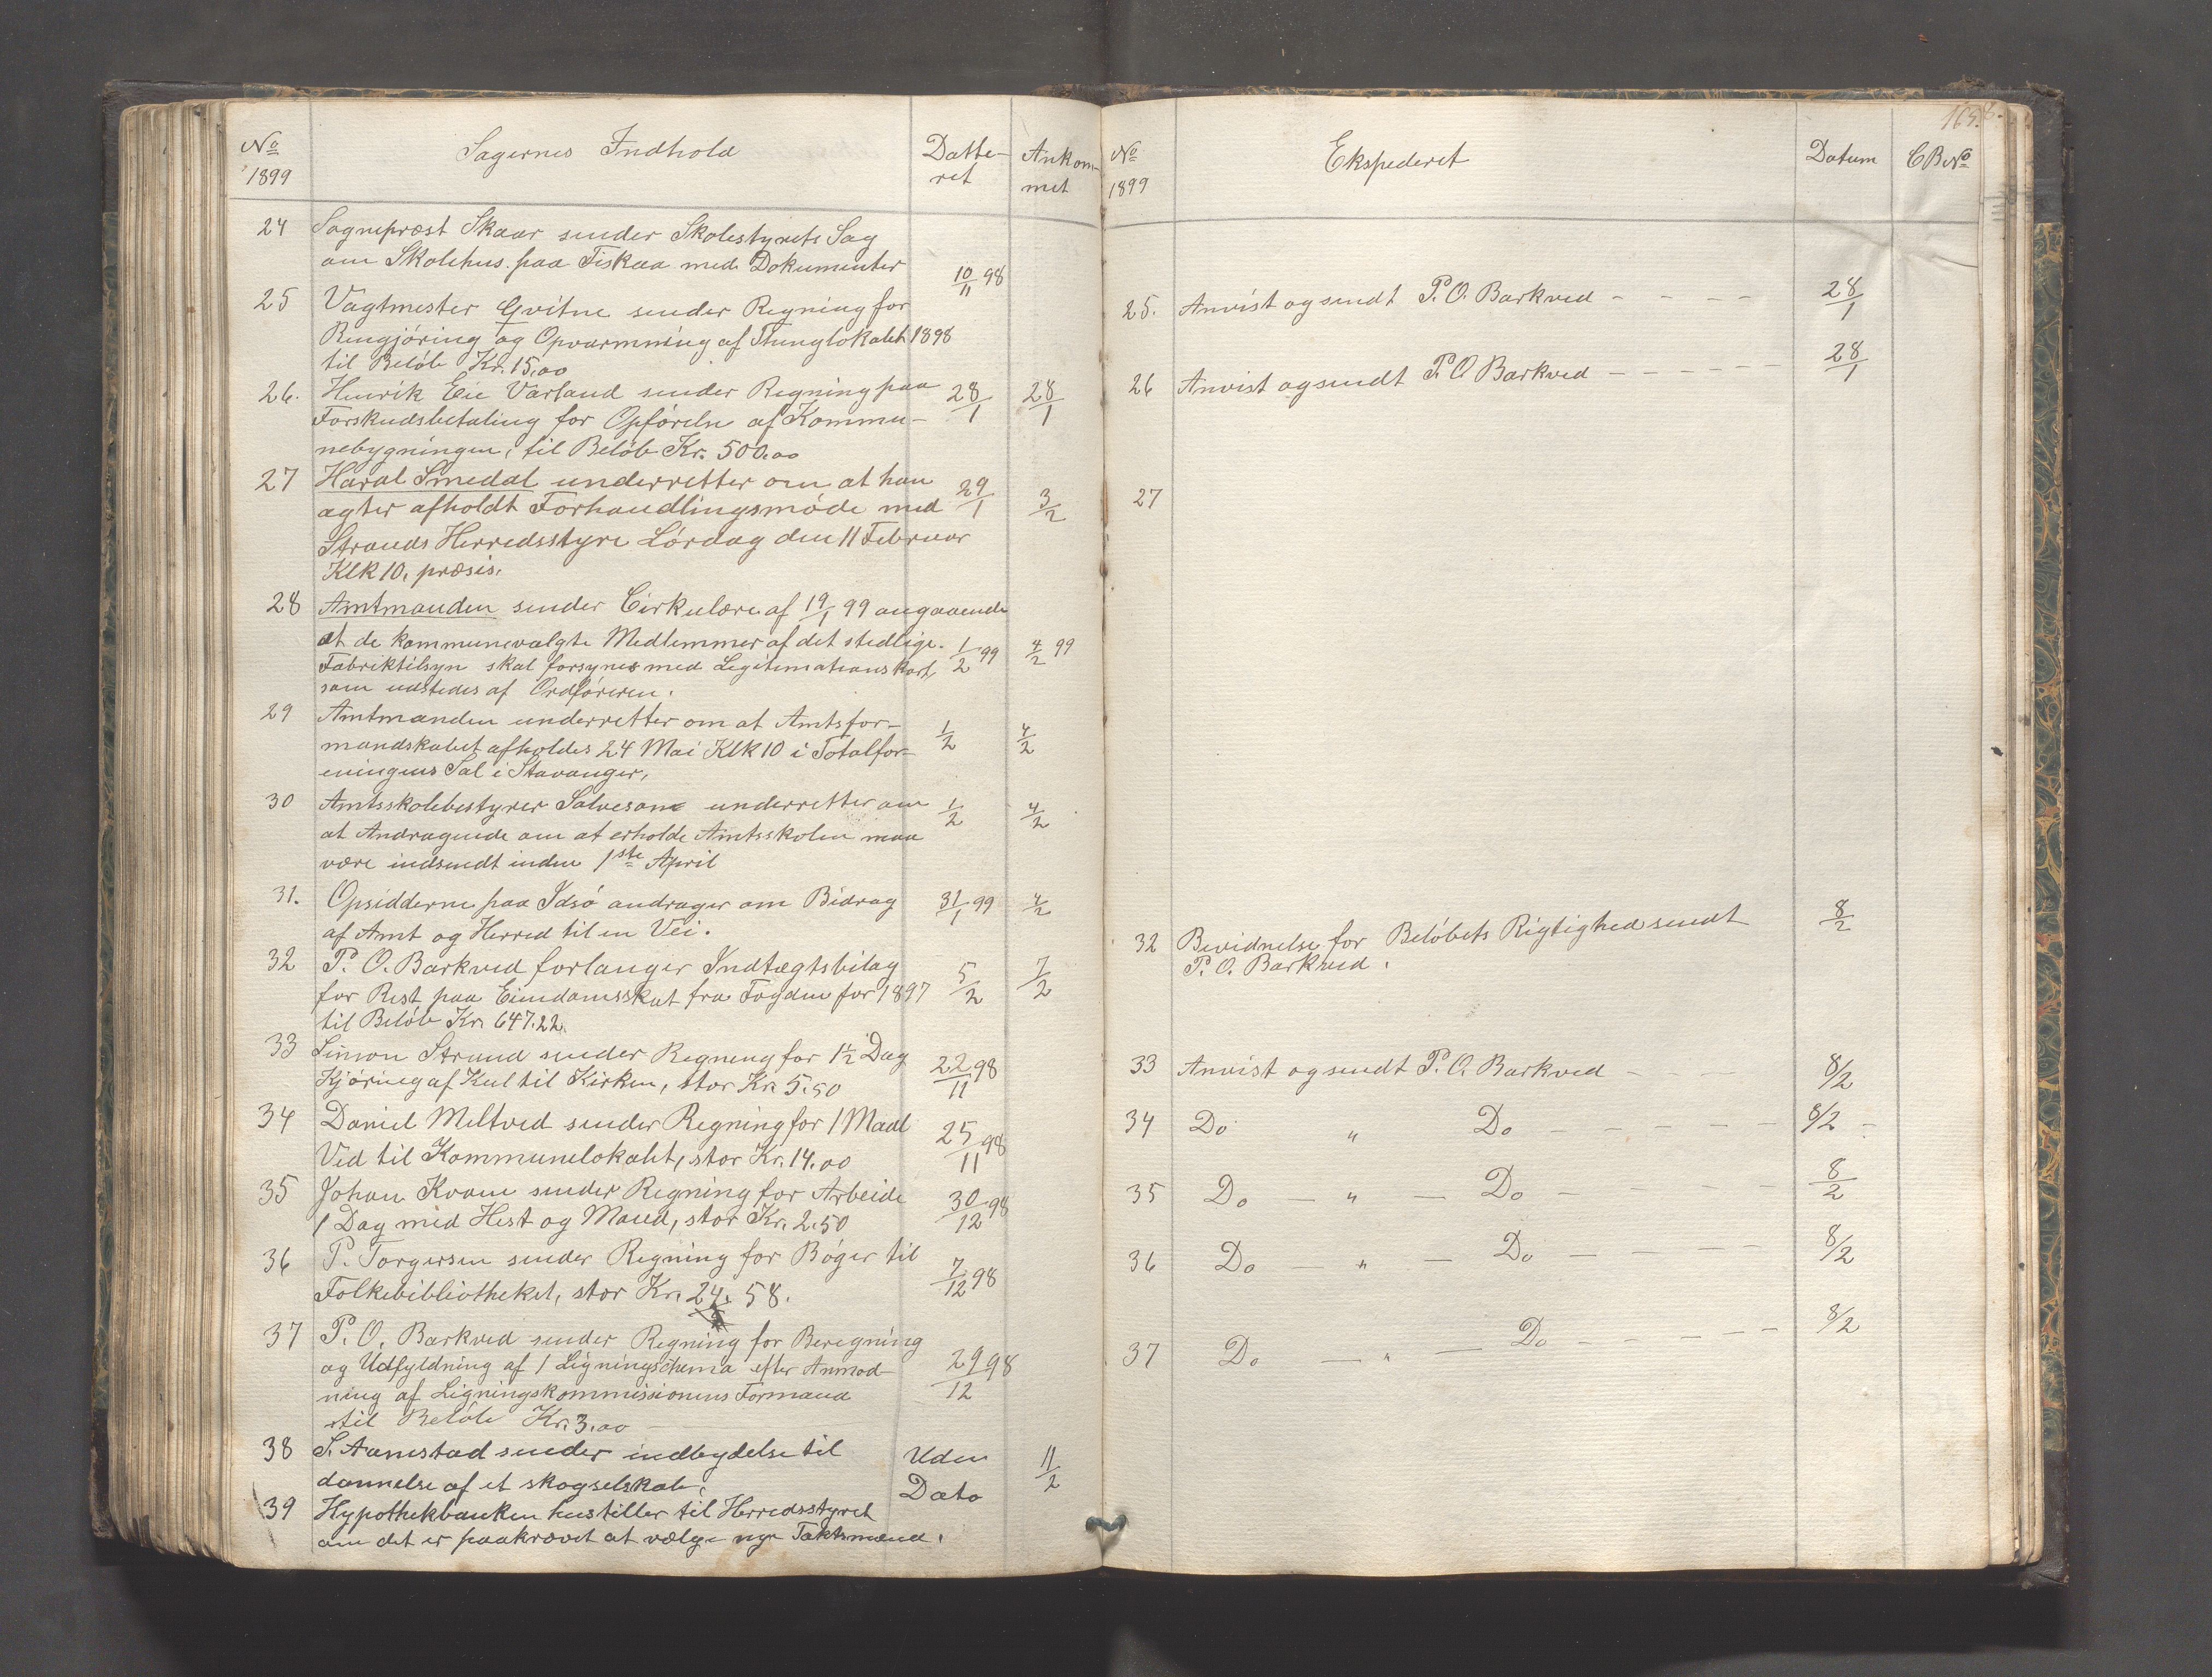 No
1899
Sagernes Indhold
Datte-
ret
Ankom-
met
24 Sognepræst Skaar sender Skolestyrets Sag
om Skolehus paa Fiskaa med Dokumenter 10/11 98
25 Vagtmester Qvitne sender Regning for
Rengjøring og Opvarmning af Thinglokalet 1898
til Beløb Kr. 15,00
26. Henrik Eie Varland sender Regning paa 28/1 28/1
Forskudsbetaling for Opføreln af Kommu-
nebygningen, til Beløb Kr. 500.00
27 Haral Smedal underretter om at han 29/1 3/2
agter afholdt Forhandlingsmøde med
Strands Herredsstyre Lørdag den 11 Februar
Klk 10, præsis.
28 Amtmanden sender Cirkulære af 19/1 99 angaaende
at de kommunevalgte Medlemmer af det stedlige. 1/2 99 4/2 99
Fabriktilsyn skal forsynes med Legitimationskort,
som udstedes af Ordføreren.
29 Amtmanden underretter om at Amtsfor-
mandskabet afholdes 24 Mai Klk 10 i Totalfor- 1/2 4/2
eningens Sal i Stavanger,
30 Amtsskolebestyrer Salvesom underretter om 1/2 4/2
at Andragende om at erholde Amtsskolen maa
være indsendt inden 1ste April
31. Opsidderne paa Idsø andrager om Bidrag 31/1 99 4/2
af Amt og Herred til en Vei.
32 P. O. Barkved forlanger Indtægtsbilag
for Rest paa Eiendomsskat fra Fogden for 1897 5/2 7/2
til Beløb Kr. 647.22.
33 Simon Strand sender Regning for 1½ Dag
Kjøring af Kul til Kirken, stor Kr. 5.50 22/11 98
34 Daniel Meltved sender Regning for 1 Maal
Ved til Kommunelokalet, stor Kr. 14.00 25/11 98
35 Johan Kvam sender Regning for Arbeide
1 Dag med Hest og Mand, stor Kr. 2.50 30/12 98
36 P. Torgersen sender Regning for Bøger til
Folkebibliotheket, stor Kr. 24. 58. 7/12 98
37 P. O. Barkved sender Regning for Beregning
og Udfyldning af 1 Ligningschema efter Anmod- 29/12 98
ning af Ligningskommissionens Formand
til Beløb Kr. 3.00
38 S. Aamstad sender indbydelse til Uden 11/2
dannelse af et skogselskab, Dato
39 Hypothekbanken henstiller til Herredsstyret
om det er paakrævet at vælge nye Takstmænd.
No
1899
Ekspederet
Datum
CB No
25. Anvist og sendt P. O. Barkved - - - - 28/1
26 Anvist og sendt P. O Barkved - - - - - - 28/1
27
32 Bevidnelse for Beløbets Rigtighed sendt 8/2
P. O. Barkved.
33 Anvist og sendt P. O. Barkved - - - - 8/2
34 Do " Do - - - - - - 8/2 -
35 Do — " — Do - - - - - - 8/2
36 Do — " — Do - - - - - 8/2
37 Do — " — Do - - - - - 8/2